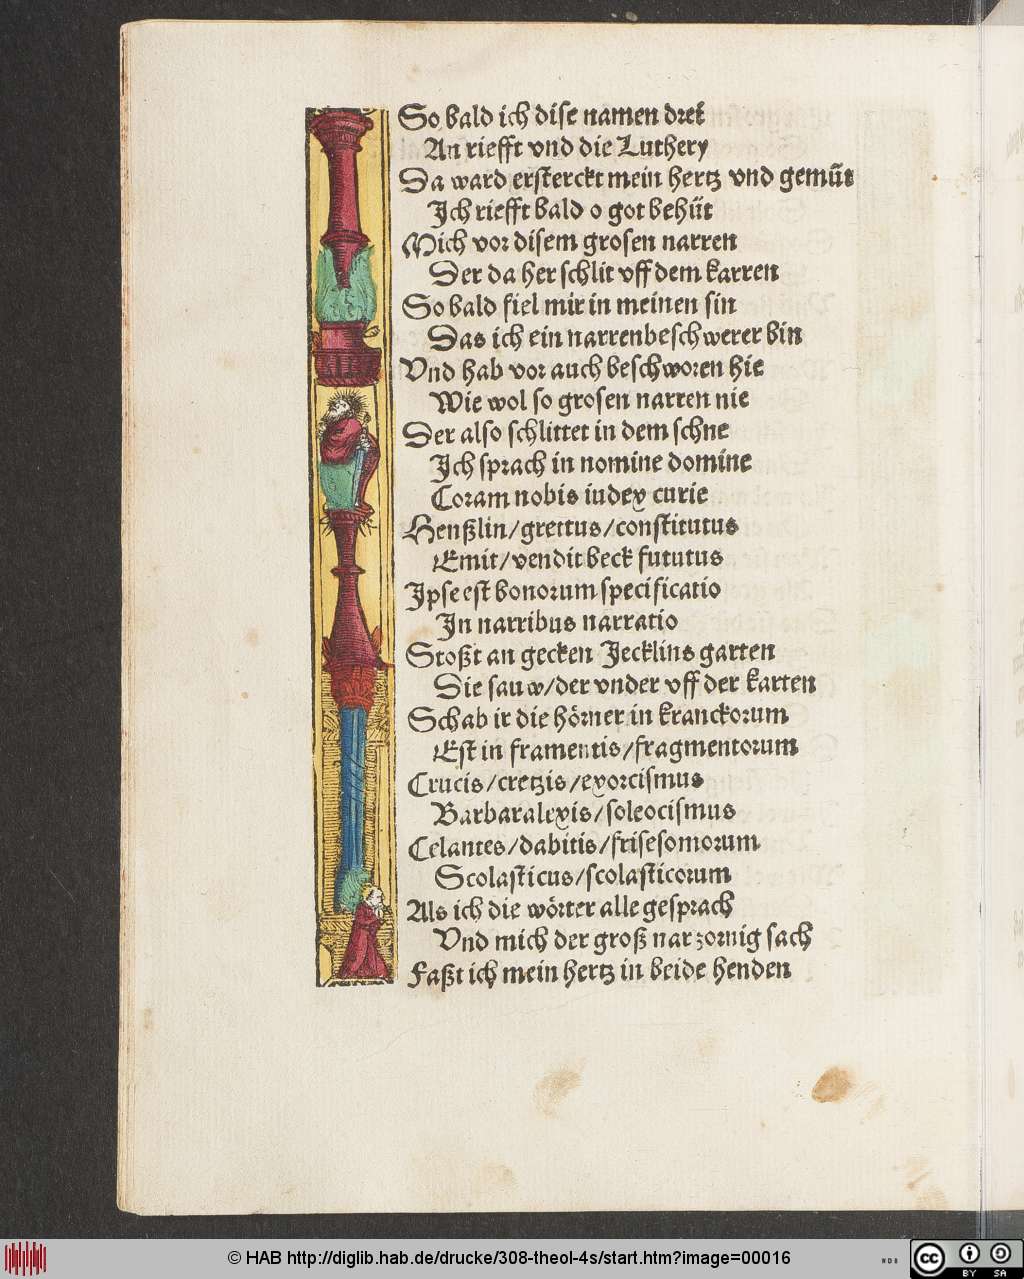 So bald ich dise namen drei
An riefft vnd die Luthery
Da ward ersterckt mein hertz vnd gemuͤt
Ich riefft bald o got behuͤt
Mich vor disem grosen narren
Der da her schlit vff dem karren
So bald fiel mir in meinen sin
Das ich ein narrenbeschwerer bin
Vnd hab vor auch beschworen hie
Wie wol so grosen narren nie
Der also schlittet in dem schne
Ich sprach in nomine domine
Coram nobis iudex curie
Henßlin/grettus/constitutus
Emit/vendit beck fututus
Ipse est bonorum specificatio
In narribus narratio
Stoßt an gecken Jecklins garten
Die sauw/der vnder vff der karten
Schab ir die hörner in kranckorum
Est in framentis/fragmentorum
Crucis/cretzis/exorcismus
Barbaralexis/soleocismus
Celantes/dabitis/frisesomorum
Scolasticus/scolasticorum
Als ich die wörter alle gesprach
Vnd mich der groß nar zornig sach
Faßt ich mein hertz in beide henden
© HAB http://diglib.hab.de/drucke/308-theol-4s/start.htm?image=00016
WDB
cc BY SA